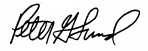 Peter G Lund